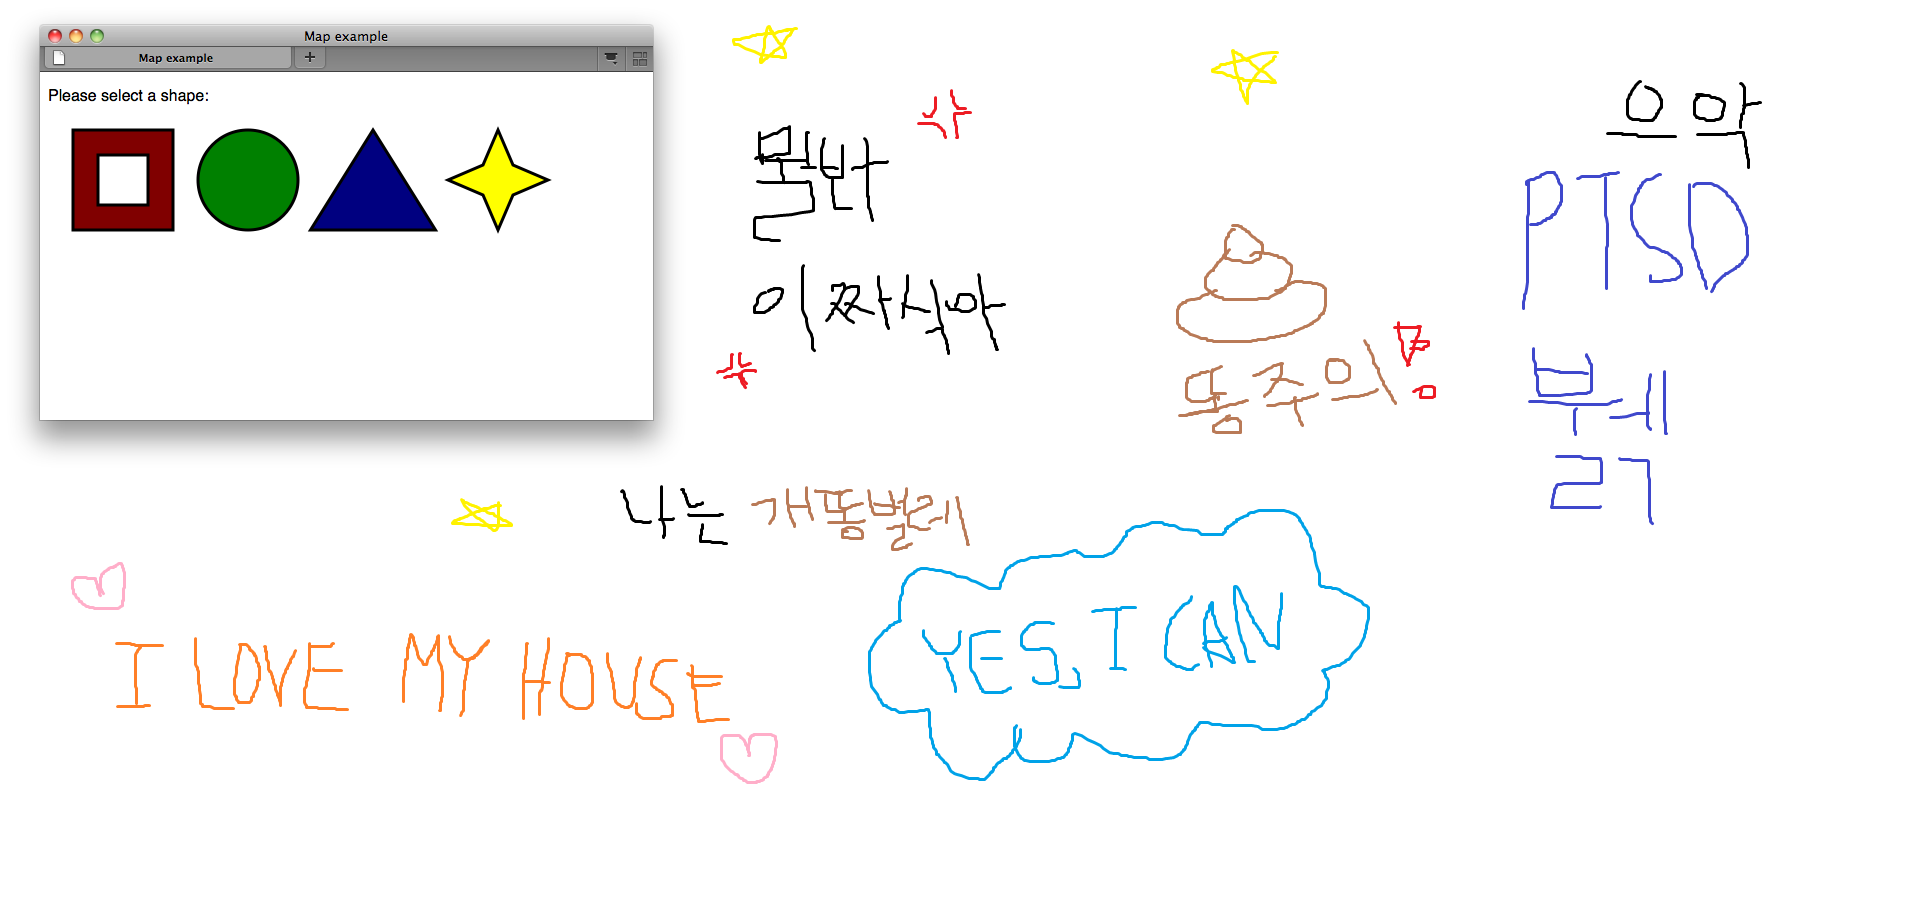 Map example
Map example
Please select a shape:
뭘봐
이짜식아
똥주의!
으악
PTSD
뷁
나는 개똥벌레
I LOVE MY HOUSE
YES, I CAN